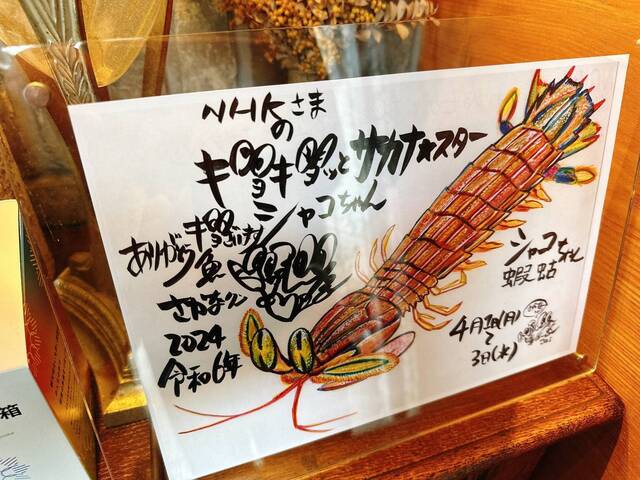 NHKさま
の
ギョギョッとサカナ★スター
シャコちゃん
ありがとう
ギョざいます
魚
さかなクン
2024
令和6年
シャコちゃん
蝦蛄
4月1日(月)
〜
3日(水)
箱